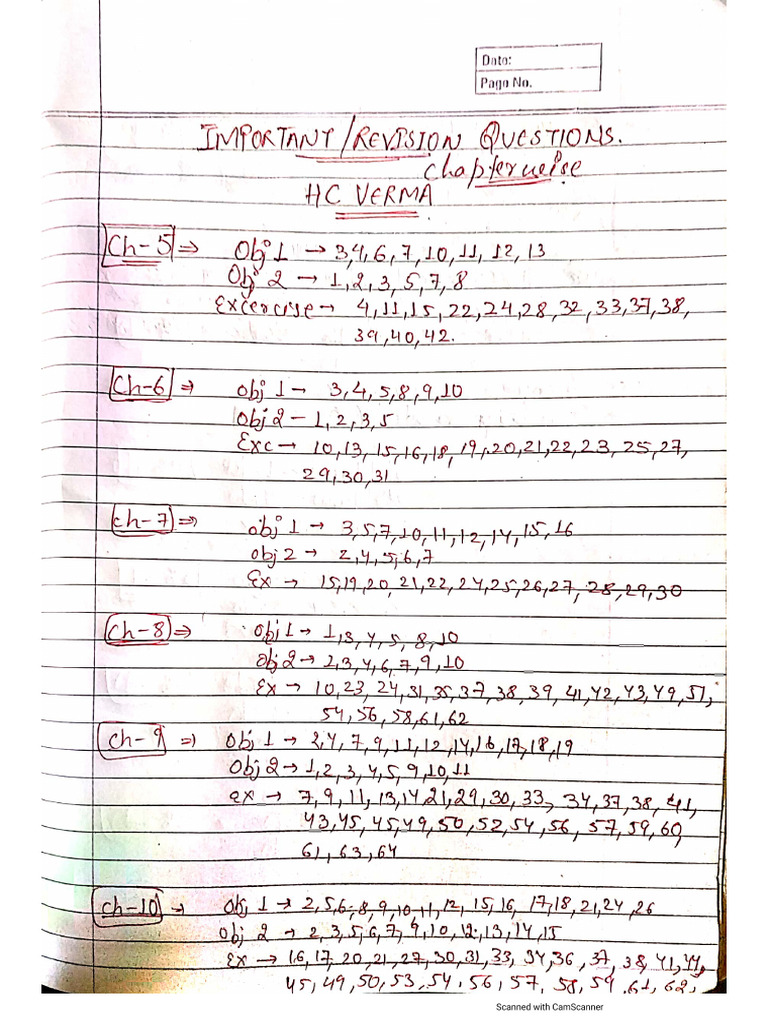 Date:
Page No.
IMPORTANT/REVISION QUESTIONS.
Chapterwise
HC VERMA
Ch-5 ⇒ Obj 1 → 3,4,6,7,10,11,12,13
Obj 2 → 1,2,3,5,7,8
Excercise → 4,11,15,22,24,28,32,33,37,38,
39,40,42.
Ch-6 ⇒ obj 1 → 3,4,5,8,9,10
Obj 2 - 1,2,3,5
Exc → 10,13,15,16,18,19,20,21,22,23,25,27,
29,30,31
Ch-7 ⇒ obj 1 → 3,5,7,10,11,12,14,15,16
obj 2 → 2,4,5,6,7
Ex → 15,19,20,21,22,24,25,26,27,28,29,30
Ch-8 ⇒ obj 1 → 1,3,4,5,8,10
Obj 2 → 2,3,4,6,7,9,10
Ex → 10,23,24,31,35,37,38,39,41,42,43,49,51,
54,56,58,61,62
Ch-9 ⇒ Obj 1 → 2,4,7,9,11,12,14,16,17,18,19
Obj 2 → 1,2,3,4,5,9,10,11
ex → 7,9,11,13,14,21,29,30,33,34,37,38,41,
43,45,45,49,50,52,54,56,57,59,60,
61,63,64
Ch-10 → Obj 1 → 2,5,6,8,9,10,11,12,15,16,17,18,21,24,26
Obj 2 → 2,3,5,6,7,9,10,12,13,14,15
Ex → 16,17,20,21,27,30,31,33,34,36,37,38,41,44,
45,49,50,53,54,56,57,58,59,61,62,
Scanned with CamScanner